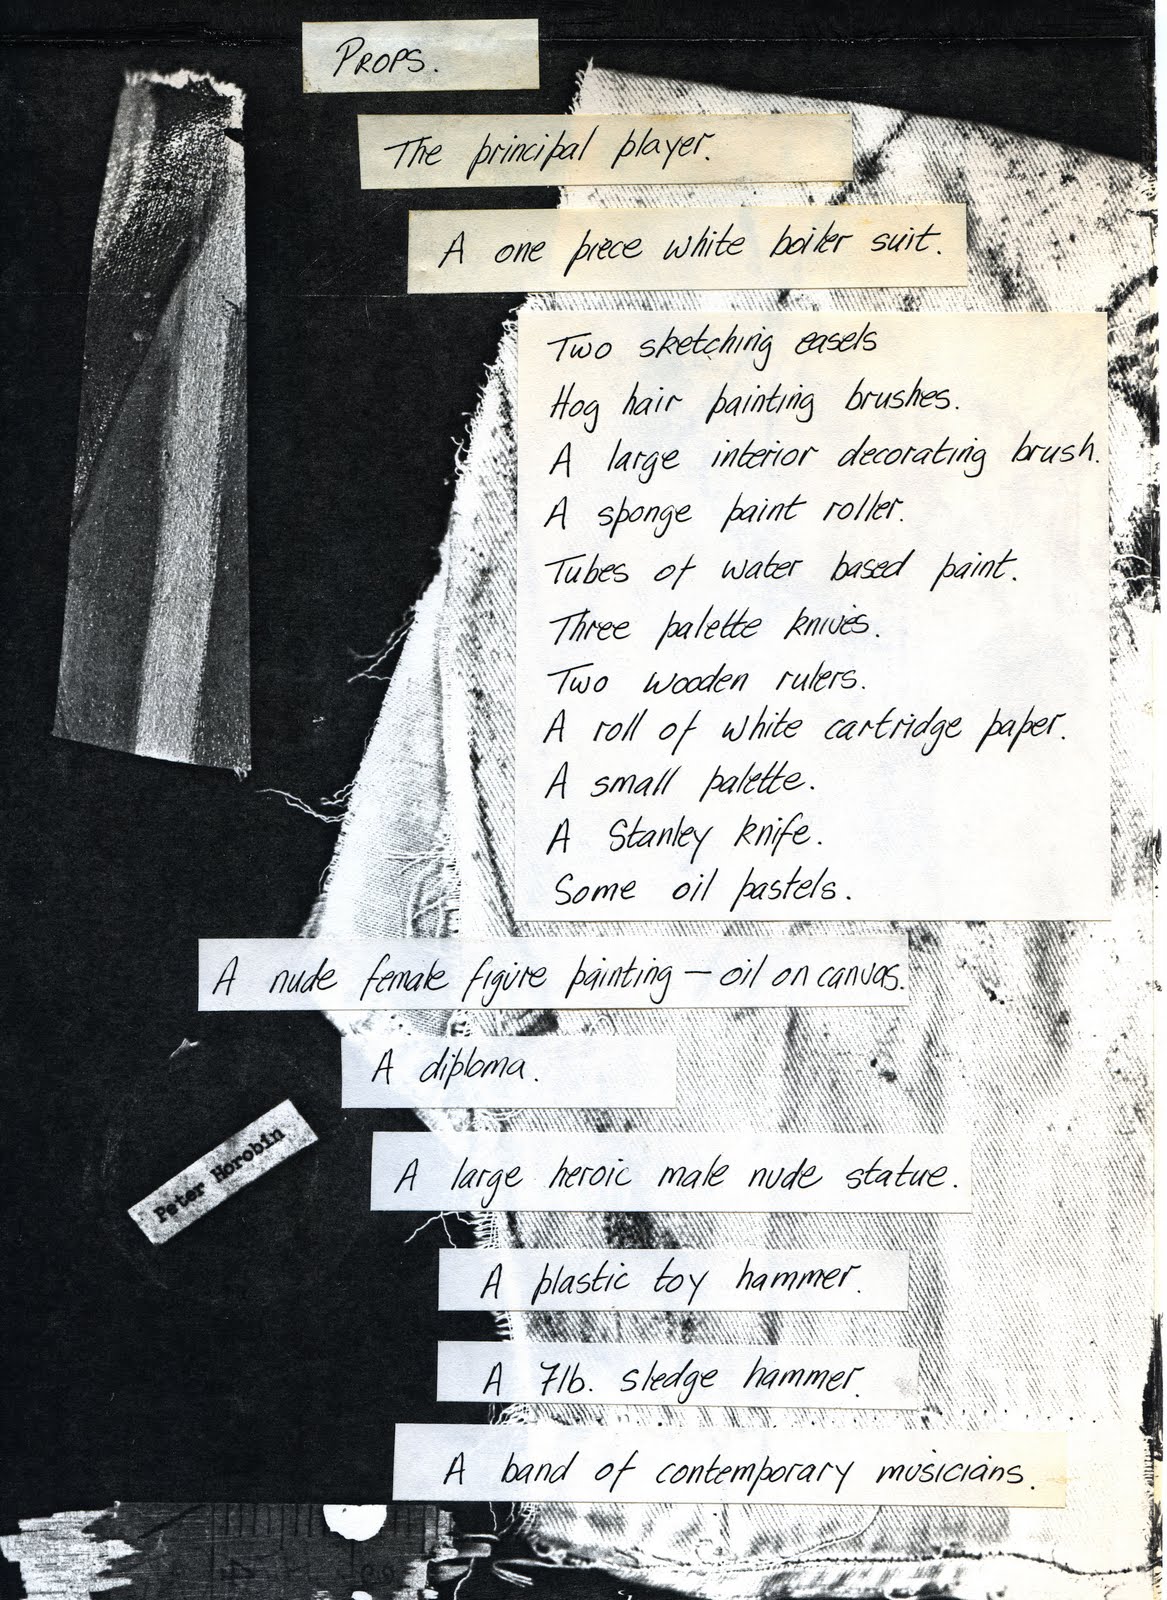 Props.
The principal player.
A one piece white boiler suit.
Two sketching easels
Hog hair painting brushes.
A large interior decorating brush.
A sponge paint roller.
Tubes of water based paint.
Three palette knives.
Two wooden rulers.
A roll of white cartridge paper.
A small palette.
A Stanley knife.
Some oil pastels.
A nude female figure painting — oil on canvas.
A diploma.
Peter Horobin
A large heroic male nude statue.
A plastic toy hammer.
A 7lb. sledge hammer.
A band of contemporary musicians.